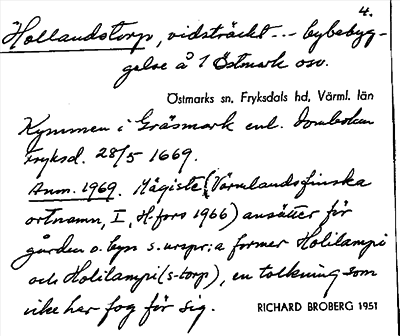 4.
Hollandstorp, vidsträckt -- bybebyg-
gelse å 1 Östmark osv.
Östmarks sn. Fryksdals hd. Värml. län
Kymmen i Gräsmark enl. domboken
Fryksd. 28/5 1669.
Anm. 1969. Mägiste (Värmlandsfinska
ortnamn, I, H:fors 1966) ansätter för
gården o. byn s. urspr:a former Holilampi
och Holilampi (s-torp), en tolkning som
icke har fog för sig.
RICHARD BROBERG 1951